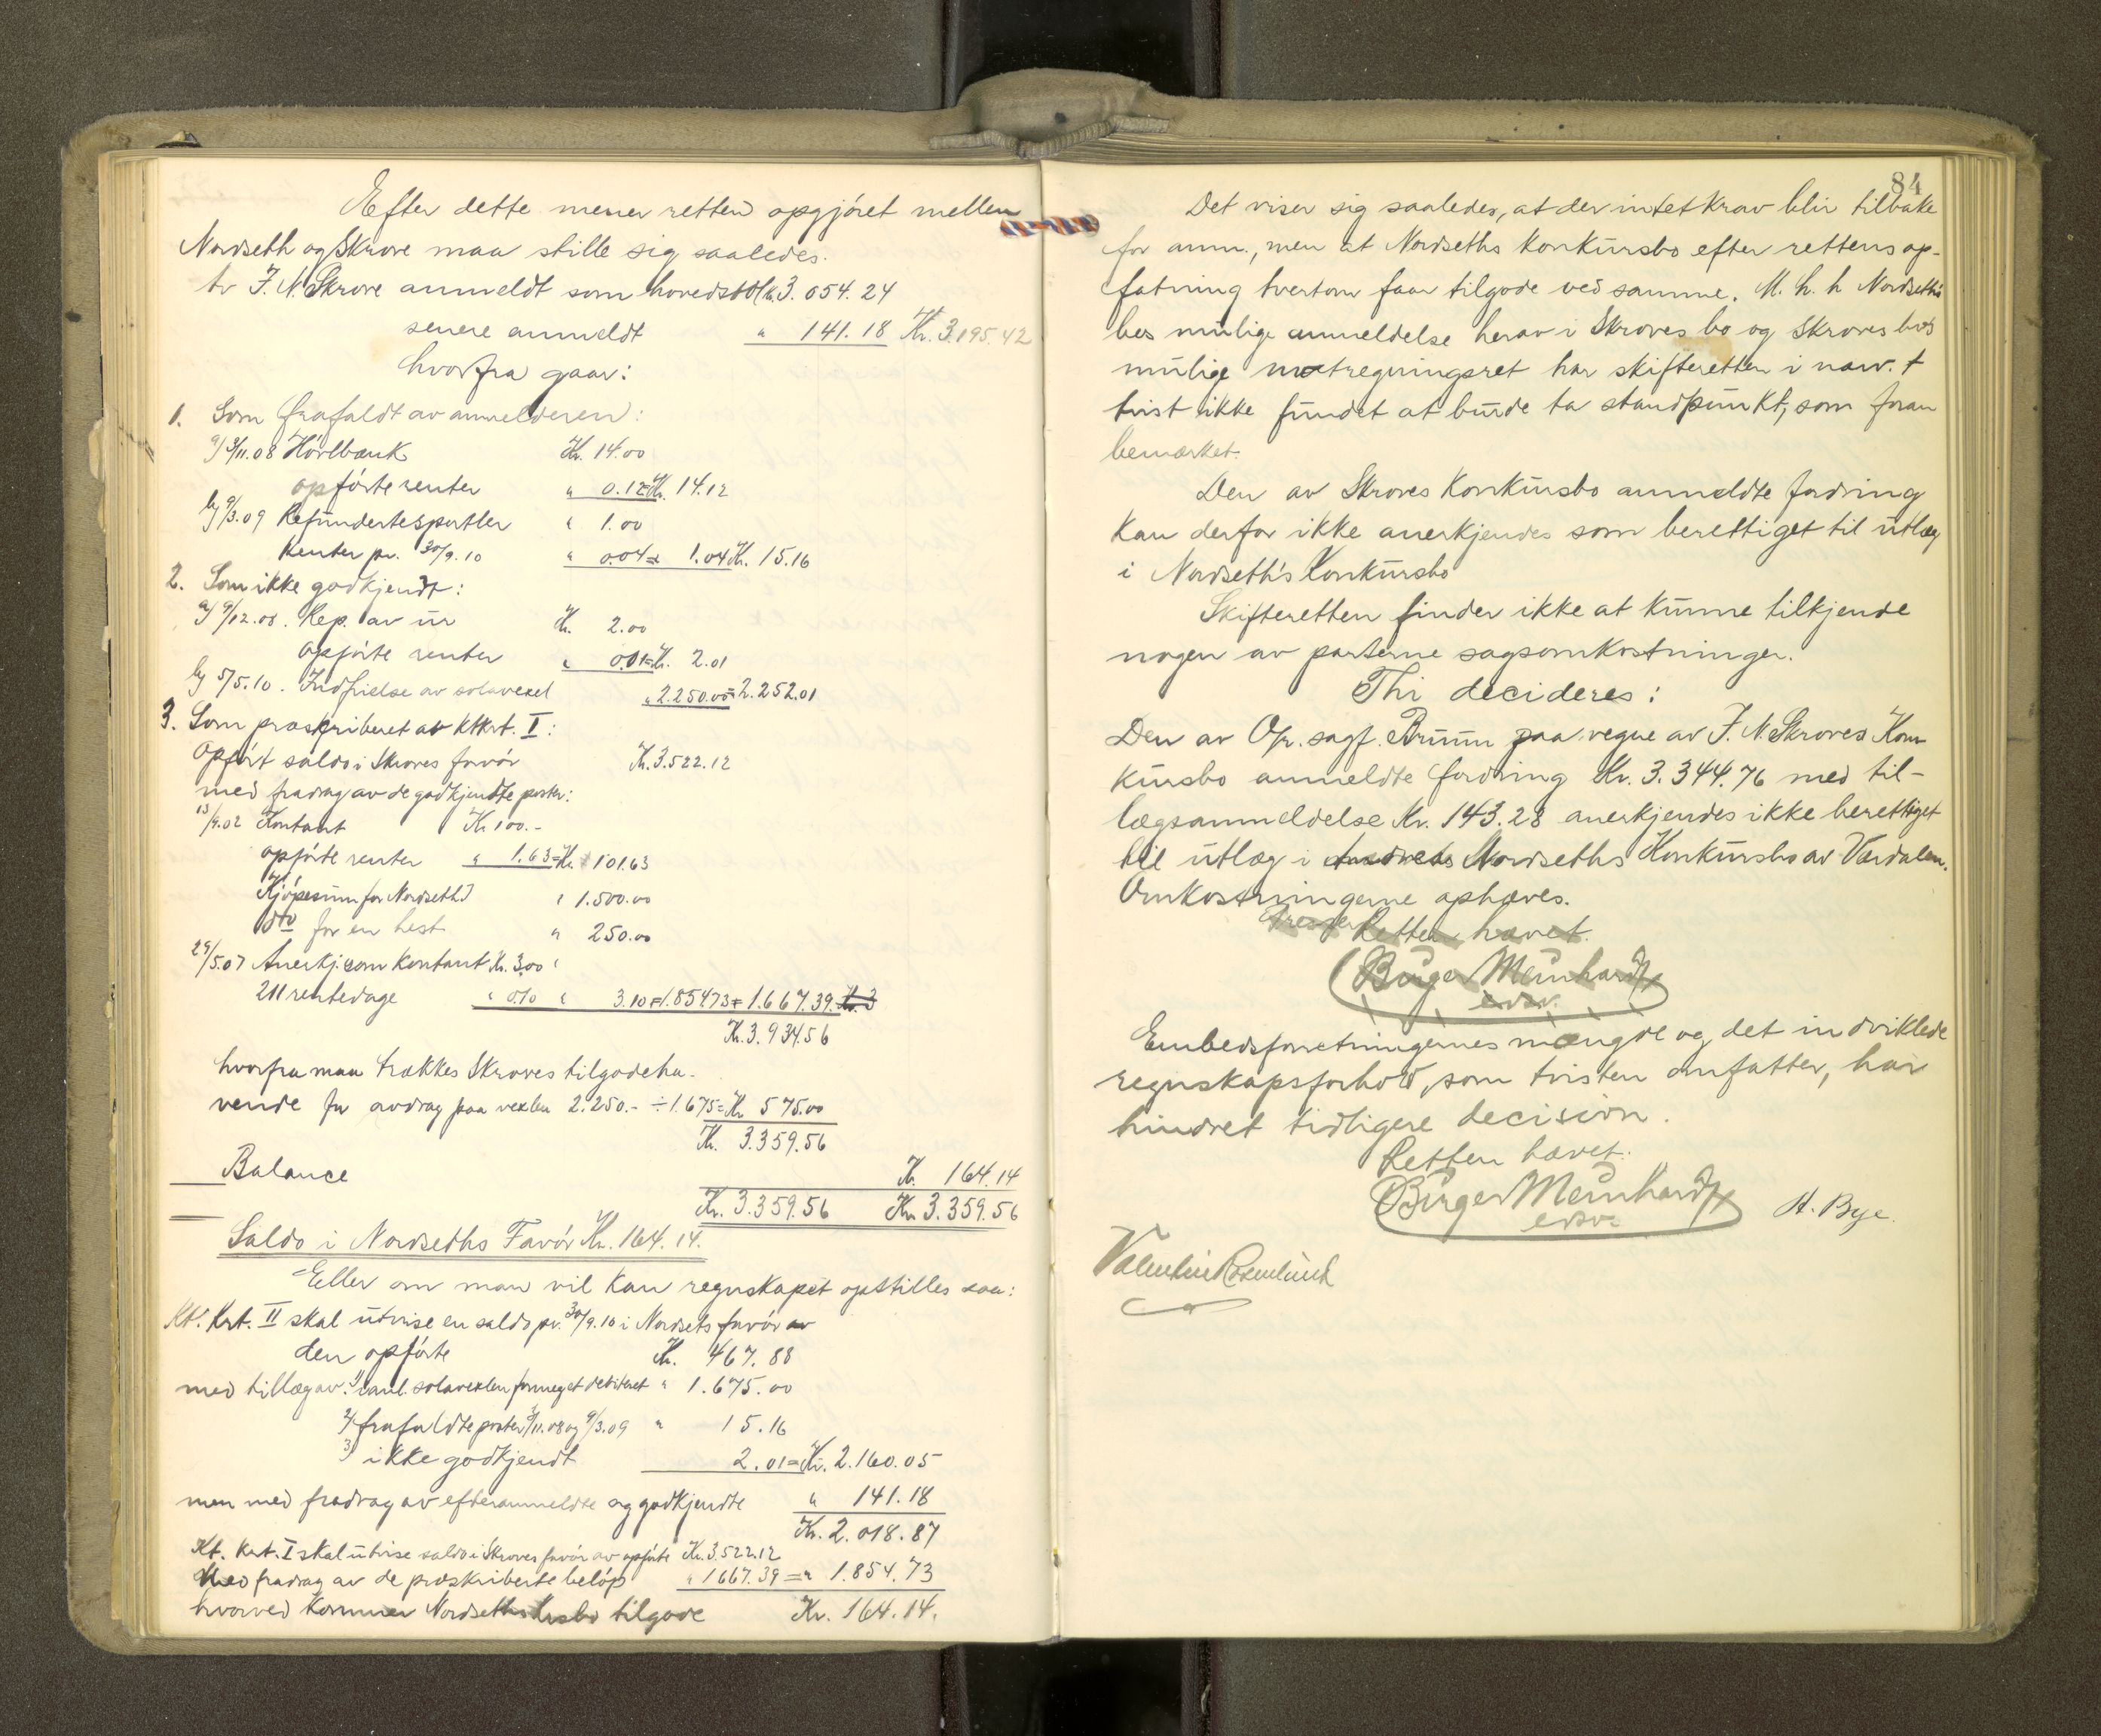 Efter dette mener retten opgjöret mellem
Nordseth og Skrove maa stille sig saaledes.
Av J. N. Skrove anmeldt som hovedstol Kr. 3.054.24
senere anmeldt " 141.18 Kr. 3.195.42
hvorfra gaar:
1. Som frafaldt av anmelderen:
a) 3/11.08 Hövlbænk Kr. 14.00
opförte renter " 0.12 = Kr. 14.12
b) 9/3.09 Refunderte sportler " 1.00
Renter pr. 30/9.10 " 0.04 = 1.04 Kr. 15.16
2. Som ikke godkjendt:
a) 9/12.08. Rep. av ur Kr. 2.00
opförte renter " 0.01 = Kr. 2.01
b) 5/5.10. Indfrielse av solavexel " 2.250.00 = 2.252.01
3. Som præskriberet av Ktkrt. I:
Opfört saldo i Skroves favör Kr. 3.522.12
med fradrag av de godkjendte poster:
13/9.02 Kontant Kr. 100.-
opförte renter " 1.63 = Kr. 101.63
Kjöpesum for Nordseth " 1.500.00
dto for en hest " 250.00
29/5.07 Anerkj. som kontant Kr. 3.00
211 rentedage " 0.10 " 3.10 = 1.854.73 = 1.667.39 Kr. 3
Kr. 3.934.56
hvorfra maa trækkes Skroves tilgodeha-
vende for avdrag paa vexlen 2.250.- ÷ 1.675 = Kr. 575.00
Kr. 3.359.56
Balance Kr. 164.14
Kr. 3.359.56 Kr. 3.359.56
Saldo i Nordseths Favör Kr. 164.14.
Eller om man vil kan regnskapet opstilles saa:
Kt. Krt. II skal utvise en saldo pr. 30/9.10 i Nordsets favör av
den opförte Kr. 467.88
med tillæg av: 1) solavexlen formeget debiteret " 1.675.00
2) frafaldte poster 3/11.08 og 9/3.09 " 15.16
3) ikke godkjendt 2.01 = Kr. 2.160.05
men med fradrag av efteranmeldte og godkjendte " 141.18
Kr. 2.018.87
Kt. Krt. I skal utvise saldo i Skroves favör av opförte Kr. 3.522.12
Med fradrag av de præskriberte belöp " 1667.39 = " 1.854.73
hvorved kommer Nordseths krsbo tilgode Kr. 164.14.
84
Det viser sig saaledes, at der intet krav blir tilbake
for anm., men at Nordseths konkursbo efter rettens op-
fatning tvertom faar tilgode ved samme. M. h. h. Nordseths
bos mulige anmeldelse herav i Skroves bo og Skroves bos
mulige motregningsret har skifteretten i nærv.
tvist ikke fundet at burde ta standpunkt, som foran
bemærket.
Den av Skroves konkursbo anmeldte fordring
kan derfor ikke anerkjendes som berettiget til utlæg
i Nordseth's konkursbo
Skifteretten finder ikke at kunne tilkjende
nogen av parterne sagsomkostninger.
Thi decideres:
Den av Opr. sagf. Bruun paa vegne av J. N. Skroves Kon-
kursbo anmeldte fordring Kr. 3.344.76 med til-
lægsanmeldelse Kr. 143.28 anerkjendes ikke berettiget
til utlæg i Andreas Nordseths Konkursbo av Værdalen.
Omkostningerne ophæves.
Retten hævet.
Birger Meinhardt
edsv.
Embedsforretningernes mængde og det indviklede
regnskapsforhold, som tvisten omfatter, har
hindret tidligere decision.
Retten hævet.
Birger Meinhardt
edsv.
H. Bye.
Valentin Rosenlund